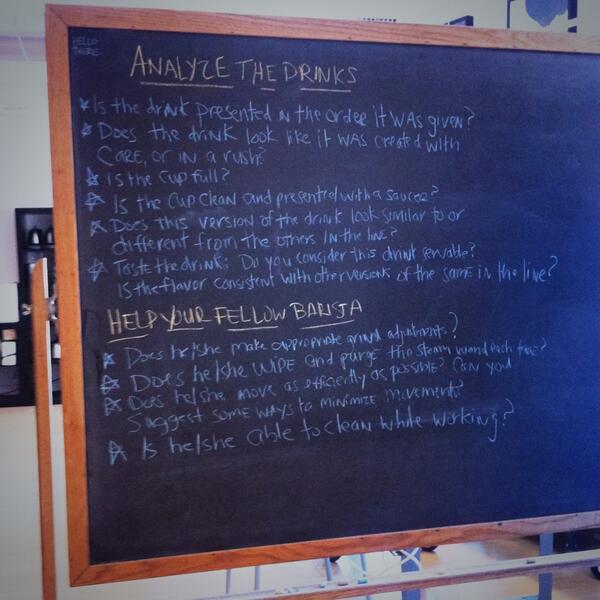 HELLO
THERE
ANALYZE THE DRINKS
Is the drink presented in the order it was given?
Does the drink look like it was created with
CARE, or in a rush?
Is the cup full?
Is the cup clean and presented with a saucer?
Does this version of the drink look similar to or
different from the others in the line?
Taste the drink: Do you consider this drink servable?
Is the flavor consistent with other versions of the same in the line?
HELP YOUR FELLOW BARISTA
Does he/she make appropriate grind adjustments?
Does he/she WIPE and purge the steam wand each time?
Does he/she move as efficiently as possible? Can you
suggest some ways to minimize movement?
Is he/she able to clean while working?